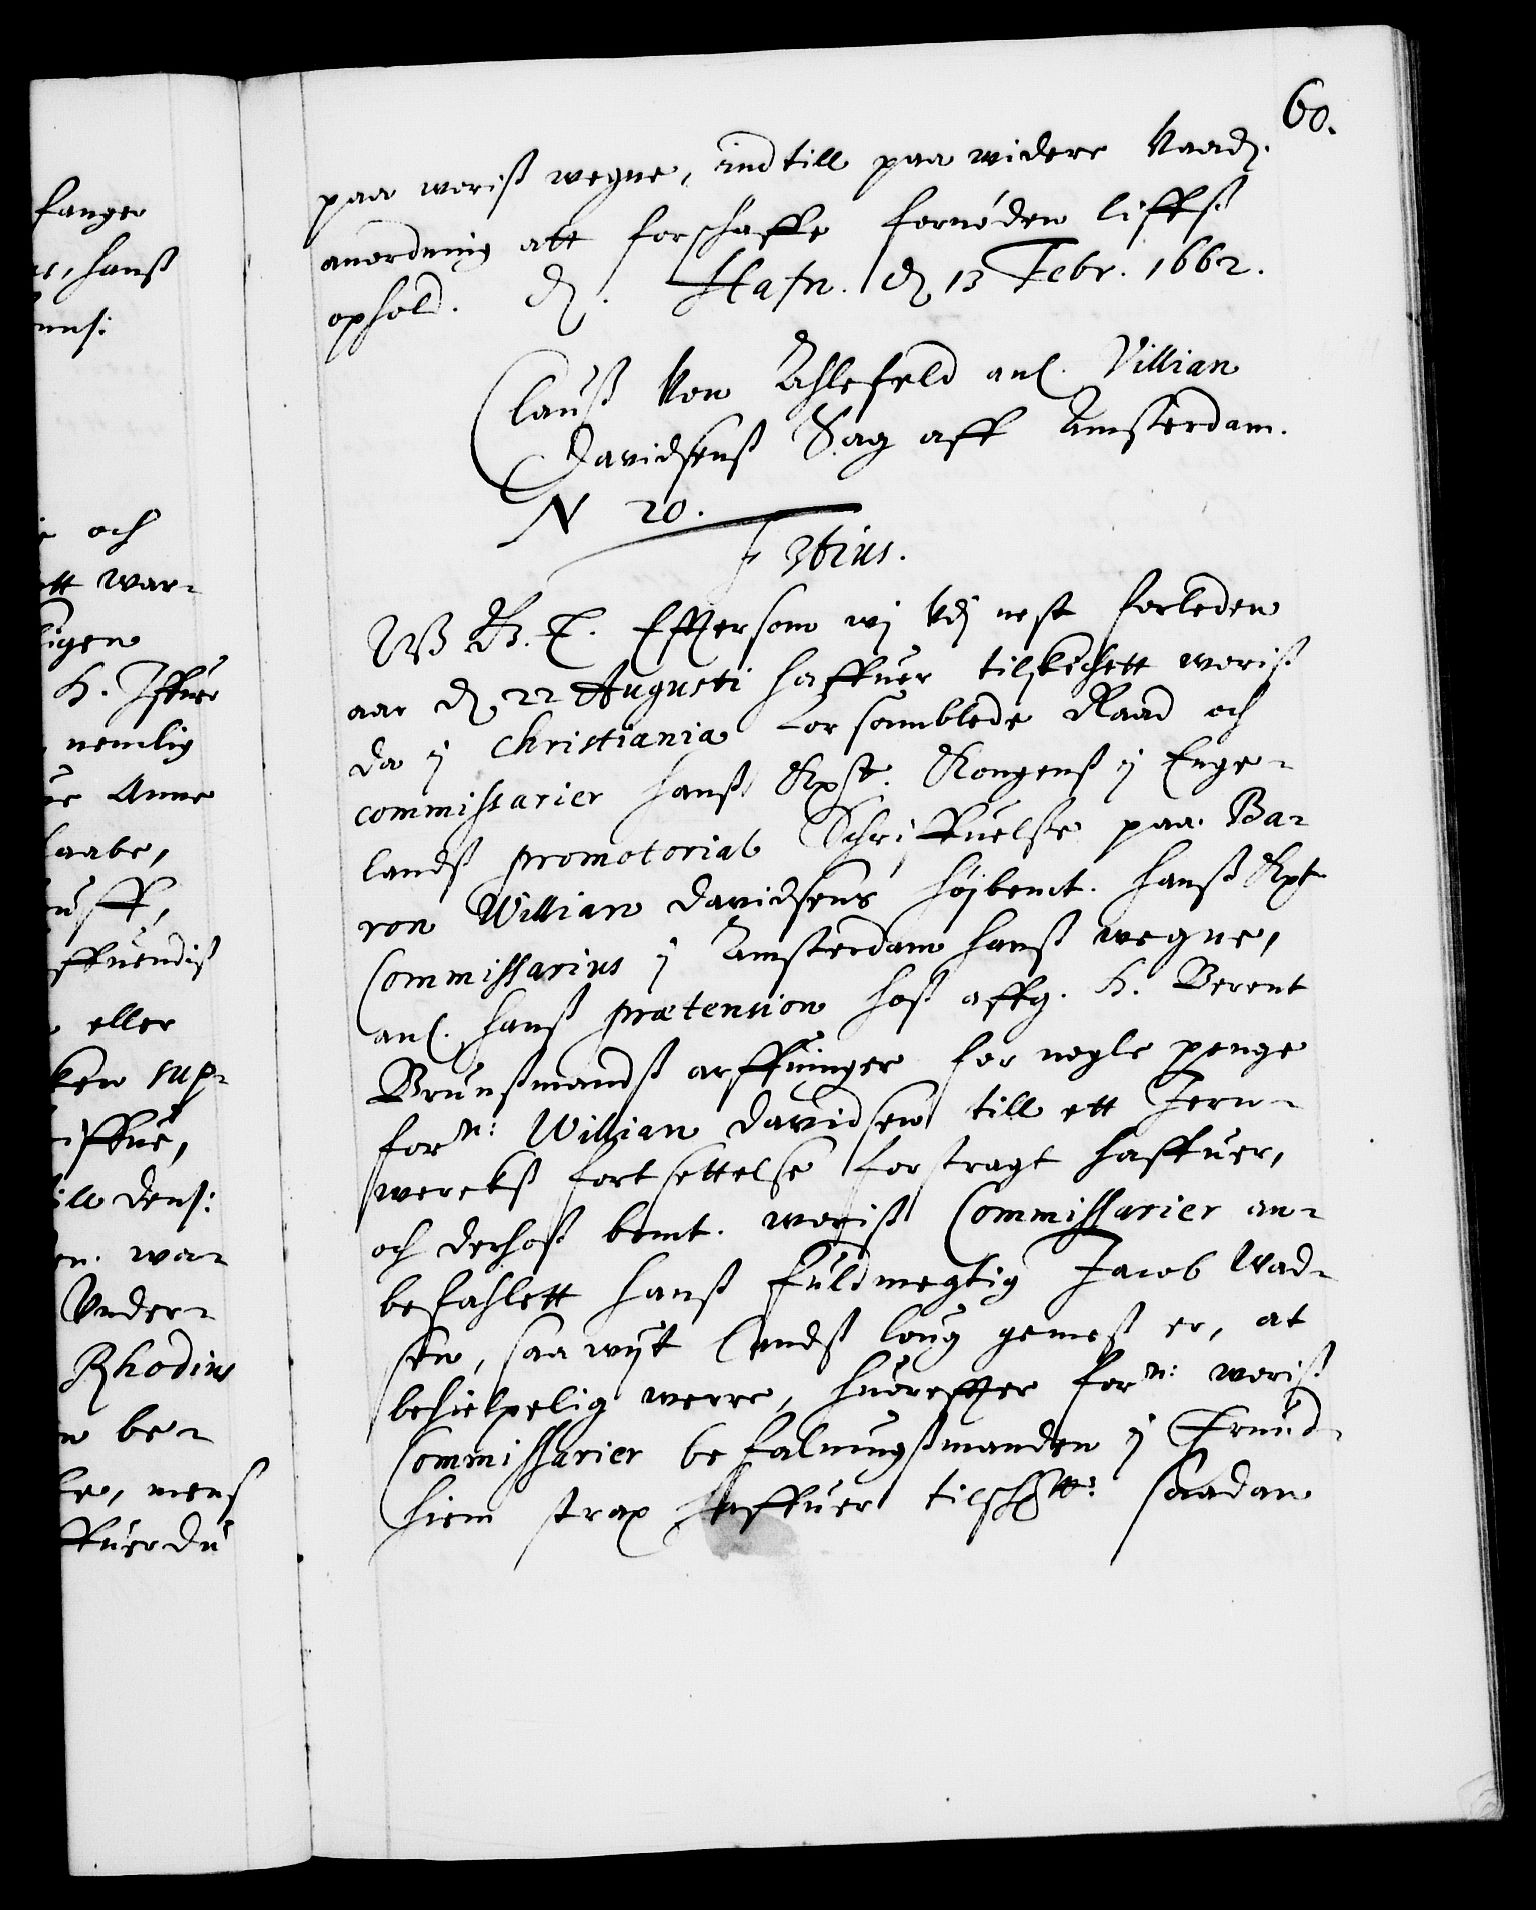 fanger
hanß
och
war-
ligen
H. Iffuer
nemlig
Anne
eller
sup-
till dens:
wa-
Vnder-
Rhodius
be-
mens
60.
paa woriß wegne, indtill paa widere Naad.
anordning att forschaffe fornøden liffs
ophold. D. Hafn. d 13 Febr. 1662.
Clauß Von Ahlefeld anl. Villian
Davidsenß Sag aff Amsterdam.
N 20.
F 3tius.
W B. T. Efftersom wj vdj nest forleden
aar d. 22 Augusti haffuer tilskichett woriß
da y Christiania forsamblede Raad och
commissarier hanß Kgst. Kongenß y Enge-
landß promotorial Schriffuelse paa Ba-
ron Willian Davidsens højbemt. hanß Kgst
Commissarius j Amsterdam hanß wegne,
anl. hanß prætension hoß affg. H. Berent
Brunßmandß arffuinger for nogle penge
forn: Willian Davidsen till ett Jern-
werckß fortsettelse forstragt haffuer,
och derhoß bemt. woriß Commissarier an-
befahlett hanß fuldmegtig Jacob Wad-
sen, saa wijt Landß loug gemeß er, at
behielpelig werre, huoreffter forn: woriß
Commissarier befalningßmanden y Trund-
hiem strax haffuer tilschr:tt: saadan